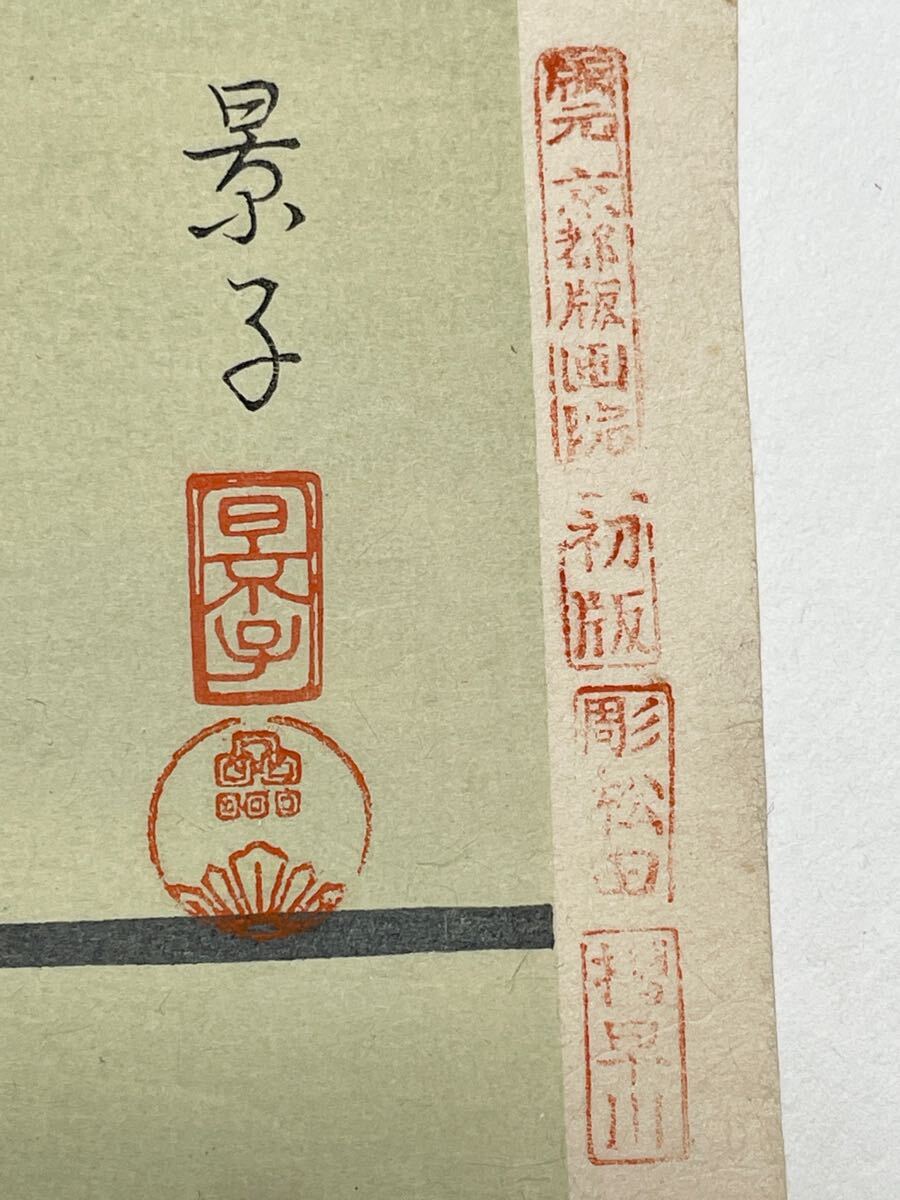 景子
景子
版元 京都版画院
初版
彫松田
摺早川